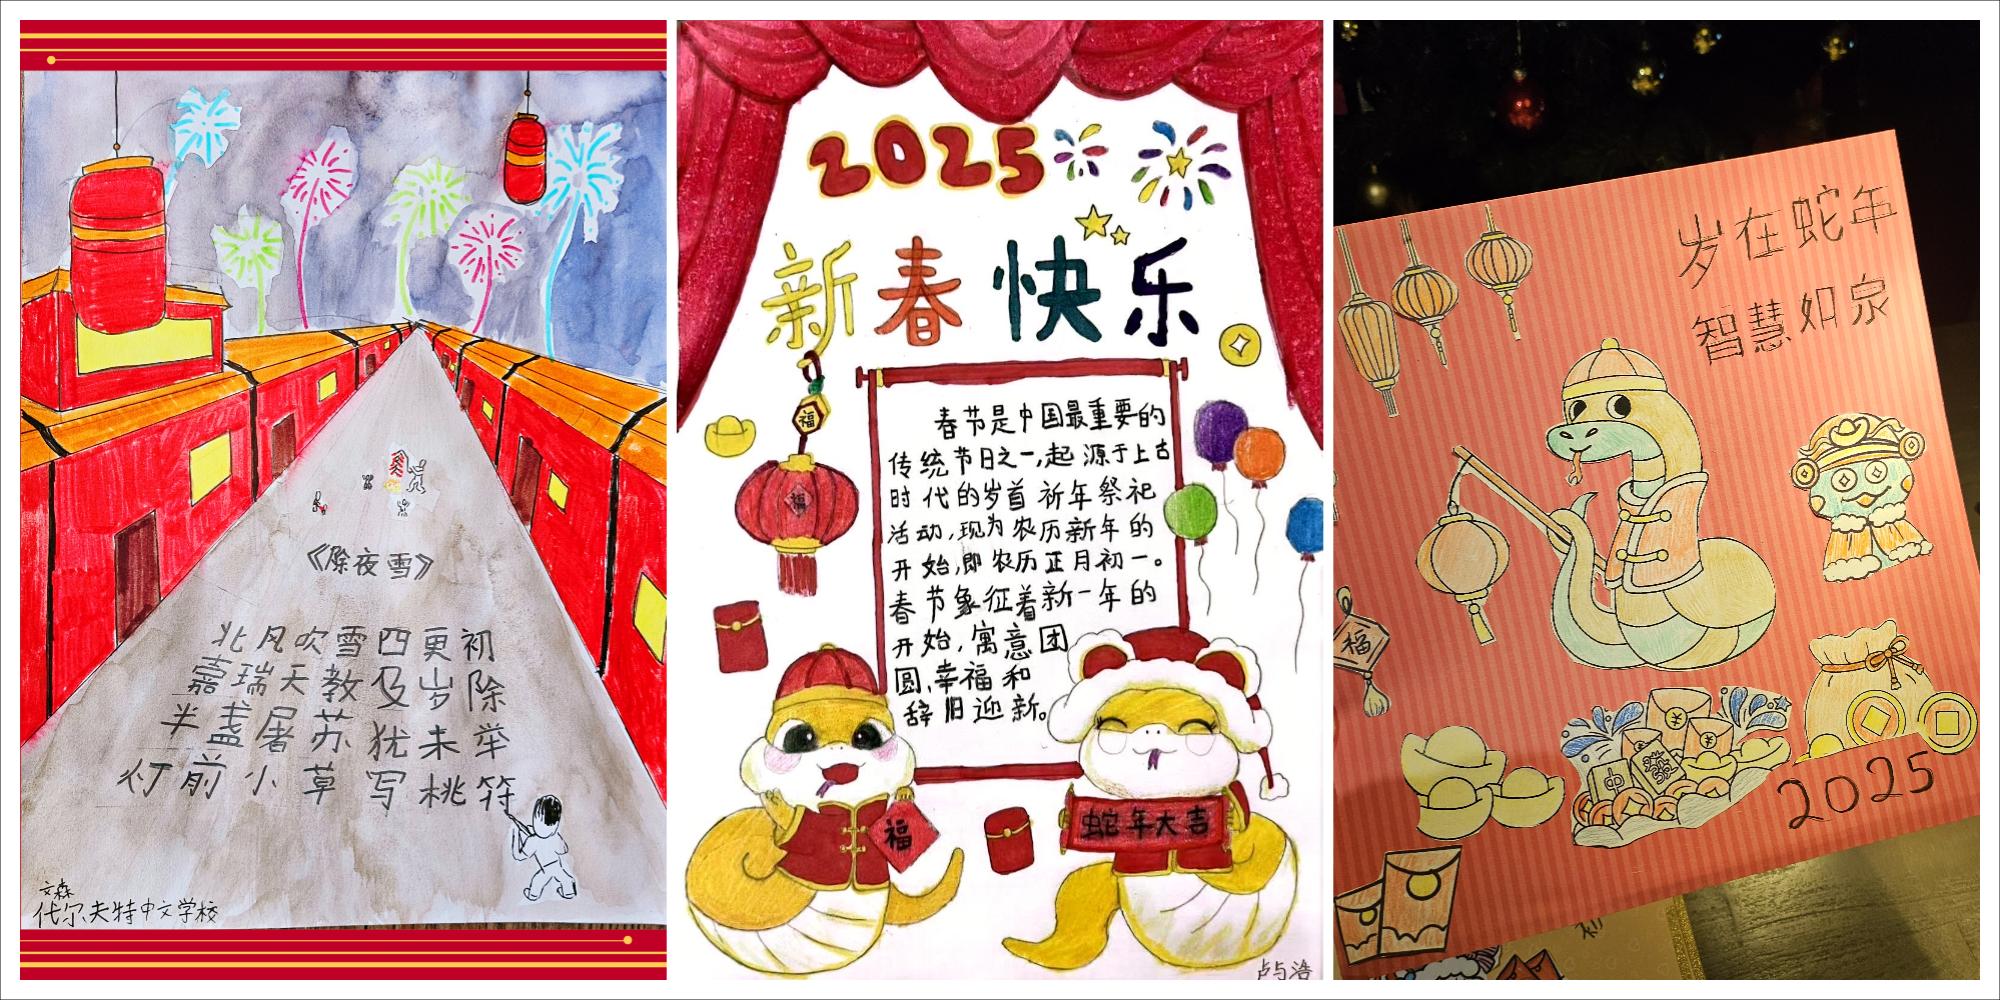 《除夜雪》
北风吹雪四更初
嘉瑞天教及岁除
半盏屠苏犹未举
灯前小草写桃符
文森
代尔夫特中文学校
2025
新春快乐
福
福
春节是中国最重要的
传统节日之一,起源于上古
时代的岁首祈年祭祀
活动,现为农历新年的
开始,即农历正月初一。
春节象征着新一年的
开始,寓意团
圆,幸福和
辞旧迎新。
福
蛇年大吉
卢与浩
岁在蛇年
智慧如泉
福
中
發
2025